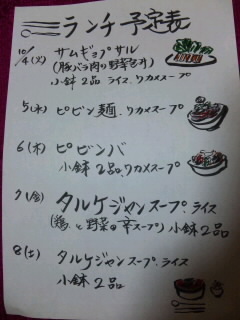 ランチ予定表
10/4(火) サムギョプサル
(豚バラ肉の野菜包み)
小鉢2品 ライス、ワカメスープ
5(水) ビビン麺、ワカメスープ
6(木) ビビンバ
小鉢2品、ワカメスープ
7(金) タルケジャンスープ、ライス
(鶏と野菜の辛スープ) 小鉢2品
8(土) タルケジャンスープ、ライス
小鉢2品